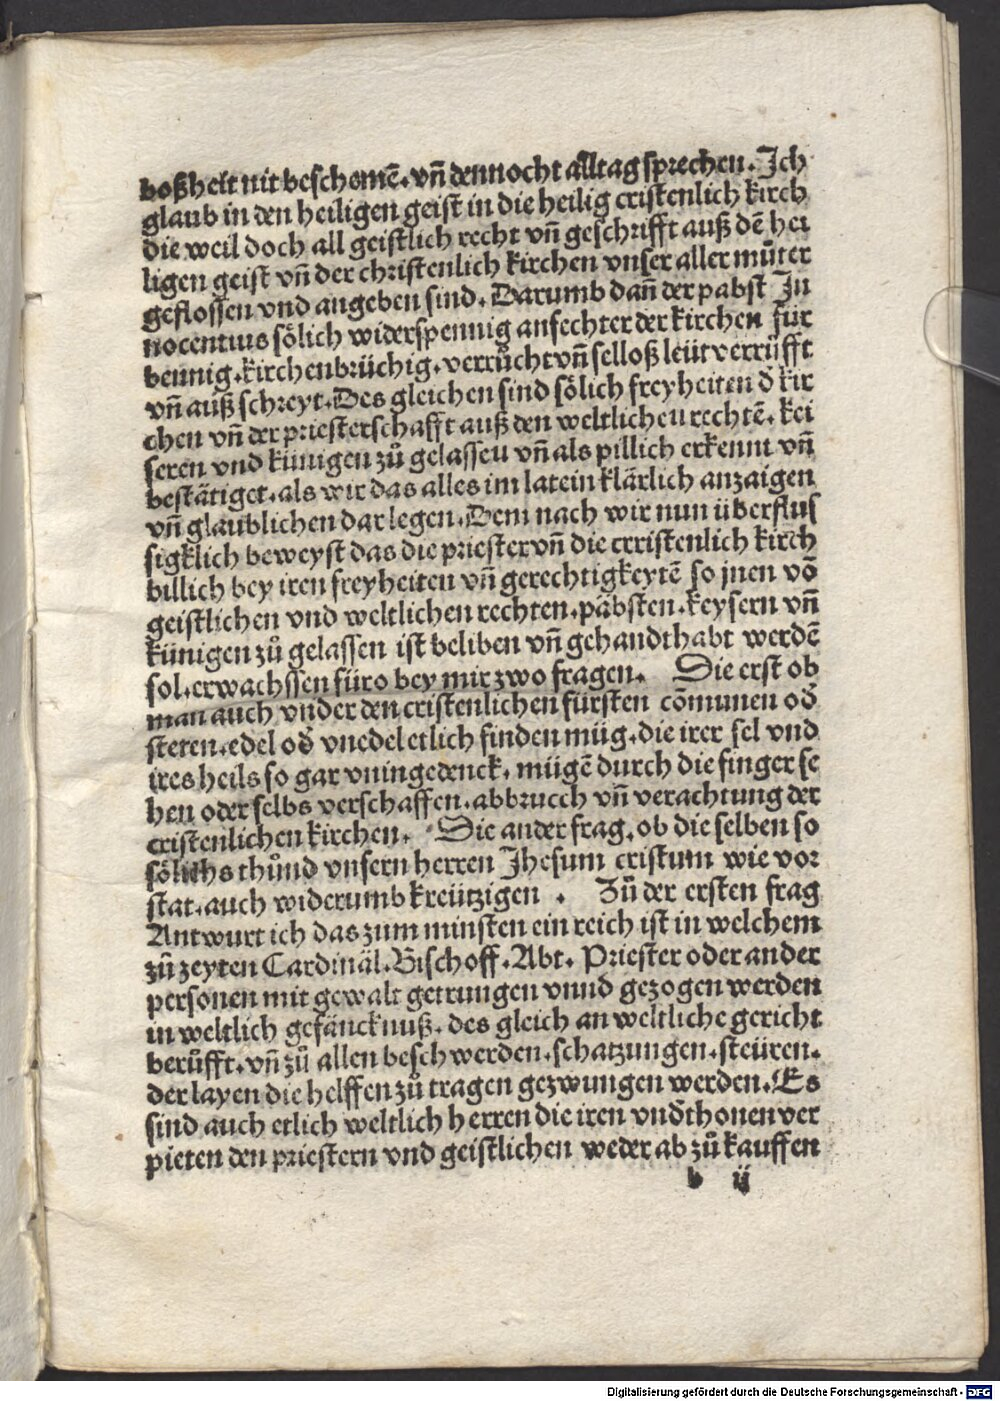 boßheit nit beschemē. vn̄ dennocht alltag sprechen. Ich
glaub in den heiligen geist in die heilig cristenlich kirch
die weil doch all geistlich recht vn̄ geschrifft auß dē hei
ligen geist vn̄ der christenlich kirchen vnser aller můter
geflossen vnd angeben sind. Darumb dan̄ der pabst In
nocentius sölich widerspennig anfechter der kirchen für
bennig. kirchenbrüchig. verrůcht vn̄ selloß leüt verrüfft
vn̄ auß schreyt. Des gleichen sind sölich freyheiten d̄ kir
chen vn̄ der priesterschafft auß den weltlichen rechtē. kei
seren vnd künigen zů gelassen vn̄ als pillich erkennt vn̄
bestätiget. als wir das alles im latein klärlich anzaigen
vn̄ glaublichen dar legen. Dem nach wir nun überflus
sigklich beweyst das die priester vn̄ die crristenlich kirch
billich bey iren freyheiten vn̄ gerechtigkeytē so jnen vō
geistlichen vnd weltlichen rechten. päbsten. keysern vn̄
künigen zů gelassen ist beliben vn̄ gehandthabt werdē
sol. erwachssen füro bey mir zwo fragen. Die erst ob
man auch vnder den cristenlichen fürsten cōmunen od̄
steten. edel od̄ vnedel etlich finden müg. die irer sel vnd
ires heils so gar vningedenck. mügē durch die finger se
hen oder selbs verschaffen. abbruch vn̄ verachtung der
cristenlichen kirchen. Die ander frag. ob die selben so
sölichs thůnd vnsern herren Jhesum cristum wie vor
stat. auch widerumb kreützigen . Zů der ersten frag
Antwurt ich das zum minsten ein reich ist in welchem
zů zeyten Cardinäl. Bischoff. Abt. Priester oder ander
personen mit gewalt getrungen vnnd gezogen werden
in weltlich gefäncknuß. des gleich an weltliche gericht
berůfft. vn̄ zů allen beschwerden. schatzungen. steüren.
der layen die helffen zů tragen gezwungen werden. Es
sind auch etlich weltlich herren die iren vnd̄thonen ver
pieten den priestern vnd geistlichen weder ab zů kauffen
b ij
Digitalisierung gefördert durch die Deutsche Forschungsgemeinschaft - DFG